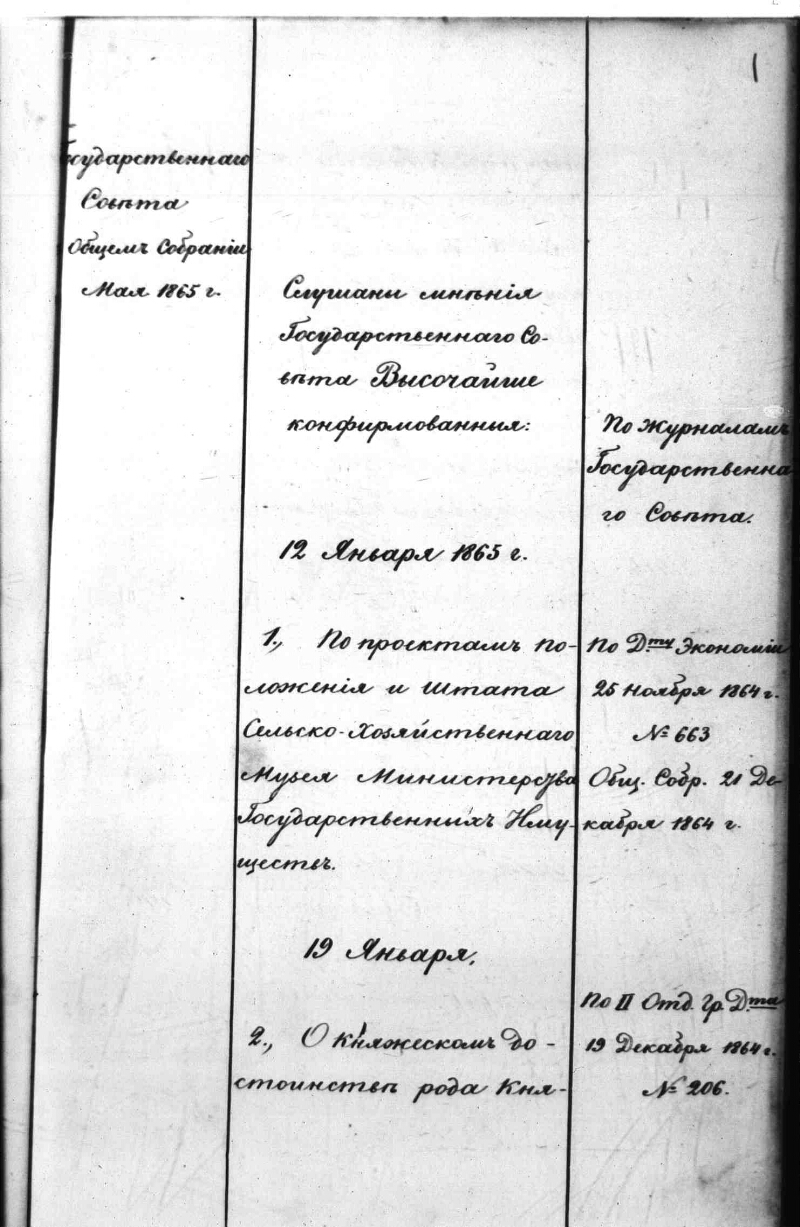 1
Государственнаго
Совѣта
Общемъ Собраніи
Мая 1865 г.
Слушаны мнѣнія
Государственнаго Со-
вѣта Высочайше
конфирмованныя:
12 Января 1865 г.
1., По проектамъ по-
ложенія и штата
Сельско-Хозяйственнаго
Музея Министерства
Государственныхъ Иму-
ществъ.
19 Января.
2., О Княжескомъ до-
стоинствѣ рода Кня-
По журналамъ
Государственна
го Совѣта.
По Д.ту Экономіи
25 Ноября 1864 г.
№ 663
Общ. Собр. 21 Де-
кабря 1864 г.
По II Отд. Гр. Д.та
19 Декабря 1864 г.
№ 206.